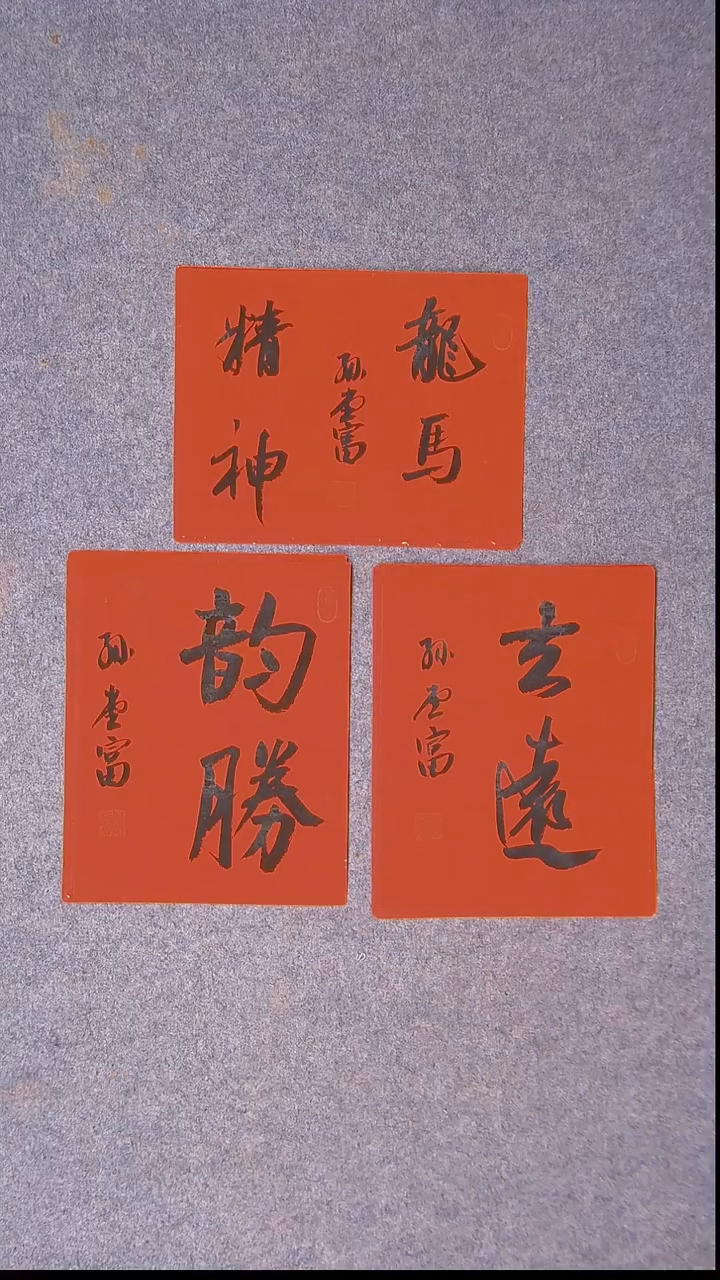 龍馬
精神
孫堂富
韵勝
孫堂富
玄遠
孫堂富